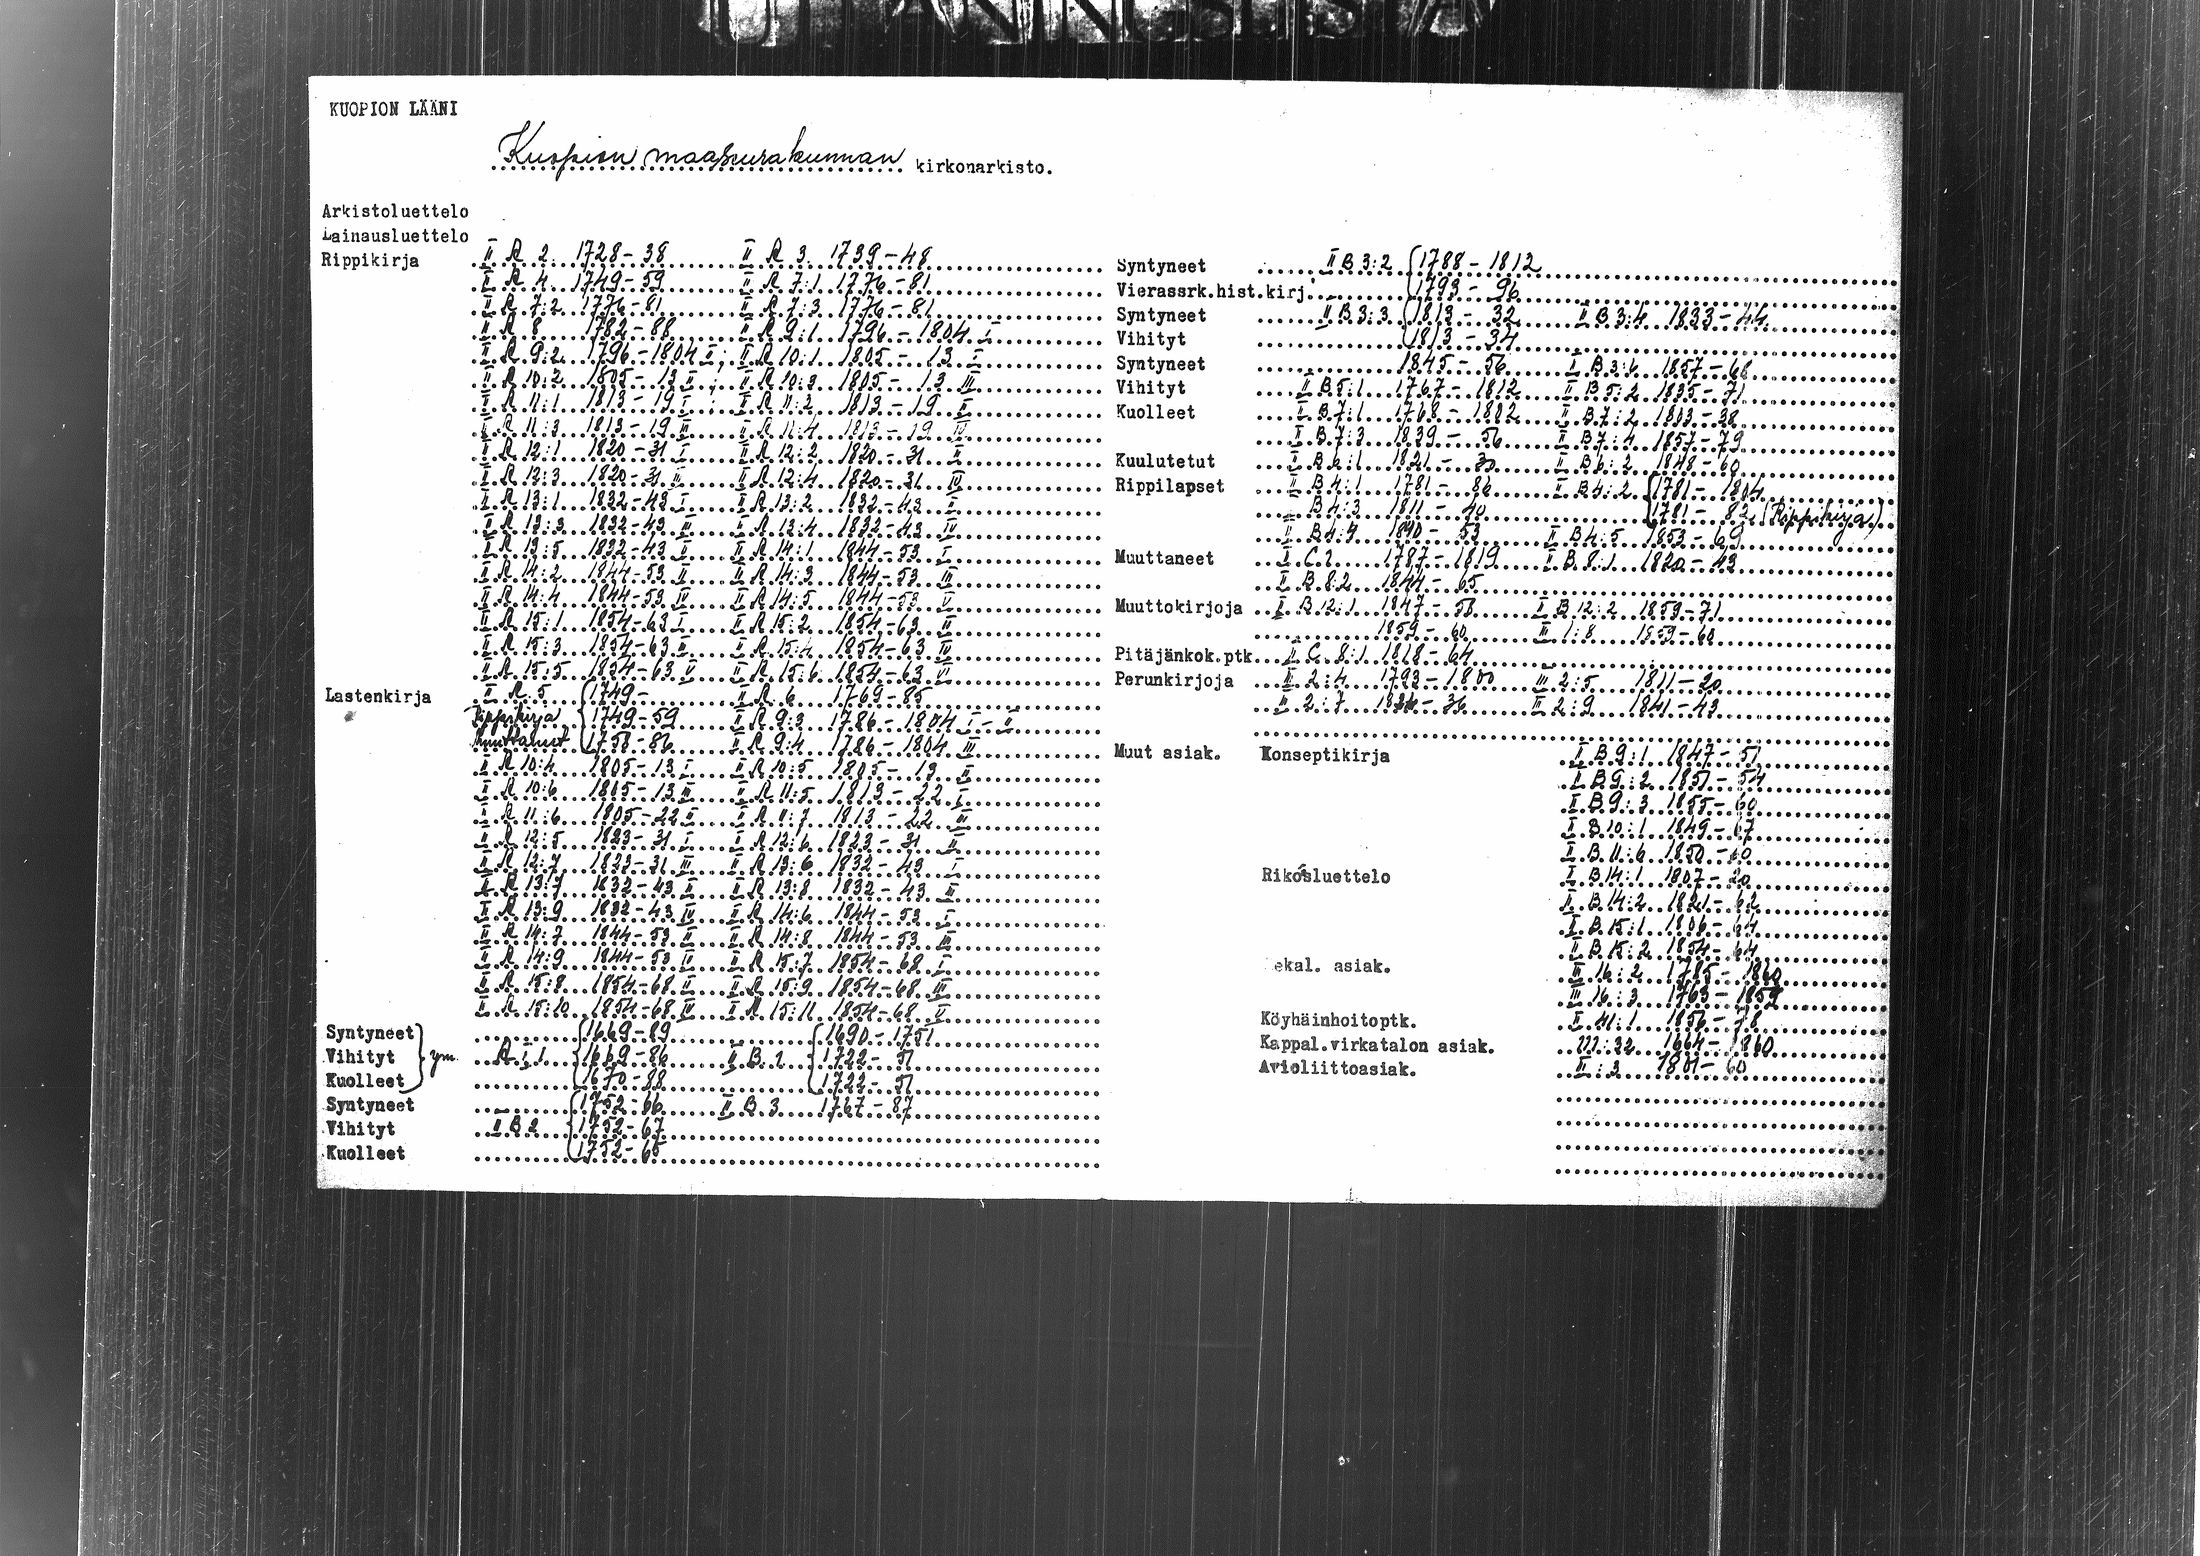 KUOPION LÄÄNI
Kuopion maaseurakunnan kirkonarkisto.
Arkistoluettelo
Lainausluettelo
Rippikirja II A 2 1728-38 II A 3 1739-48
II A 4 1749-59 II A 7:1 1776-81
II A 7:2 1776-81 II A 7:3 1776-81
II A 8 1782-88 II A 9:1 1796-1804 I
II A 9:2 1796-1804 II; II A 10:1 1805-13 I
II A 10:2 1805-13 II; II A 10:3 1805-13 III
II A 11:1 1813-19 I; II A 11:2 1813-19 II
II A 11:3 1813-19 III II A 11:4 1813-19 IV
II A 12:1 1820-31 I II A 12:2 1820-31 II
II A 12:3 1820-31 III II A 12:4 1820-31 IV
II A 13:1 1832-43 I II A 13:2 1832-43 II
II A 13:3 1832-43 III II A 13:4 1832-43 IV
II A 13:5 1832-43 V II A 14:1 1844-53 I
II A 14:2 1844-53 II II A 14:3 1844-53 III
II A 14:4 1844-53 IV II A 14:5 1844-53 V
II A 15:1 1854-63 I II A 15:2 1854-63 II
II A 15:3 1854-63 III II A 15:4 1854-63 IV
II A 15:5 1854-63 V II A 15:6 1854-63 VI
Lastenkirja II A 5 1749- II A 6 1769-85
Rippikirja 1749-59 II A 9:3 1786-1804 I-II
Muuttaneet 1758-86 II A 9:4 1786-1804 III
II A 10:4 1805-13 I II A 10:5 1805-13 II
II A 10:6 1805-13 III II A 11:5 1813-22 I
II A 11:6 1805-22 II II A 11:7 1813-22 III
II A 12:5 1823-31 I II A 12:6 1823-31 II
II A 12:7 1823-31 III II A 13:6 1832-43 I
II A 13:7 1832-43 II II A 13:8 1832-43 III
II A 13:9 1832-43 IV II A 14:6 1844-53 I
II A 14:7 1844-53 II II A 14:8 1844-53 III
II A 14:9 1844-53 IV II A 15:7 1854-68 I
II A 15:8 1854-68 II II A 15:9 1854-68 III
II A 15:10 1854-68 IV II A 15:11 1854-68 V
Syntyneet 1669-89 1690-1751
Vihityt ym. A I 1 1669-86 II B 1 1722-51
Kuolleet 1670-88 1722-51
Syntyneet 1752-66 II B 3 1767-87
Vihityt II B 2 1752-67
Kuolleet 1752-65
Syntyneet II B 3:2 1788-1812
Vierassrk.hist.kirj. 1793-96
Syntyneet II B 3:3 1813-32 II B 3:4 1833-44
Vihityt 1813-34
Syntyneet 1845-56 II B 3:6 1857-68
Vihityt II B 5:1 1767-1812 II B 5:2 1835-71
Kuolleet II B 7:1 1768-1802 II B 7:2 1803-38
II B 7:3 1839-56 II B 7:4 1857-79
Kuulutetut II B 6:1 1821-30 II B 6:2 1848-60
Rippilapset II B 4:1 1781-86 II B 4:2 1781-1804
B 4:3 1811-40 1781-82 (Rippikirja)
II B 4:4 1840-53 II B 4:5 1853-69
Muuttaneet II C 2 1787-1819 II B 8:1 1820-43
II B 8:2 1844-65
Muuttokirjoja II B 12:1 1847-58 II B 12:2 1859-71
1859-60 III 1:8 1859-60
Pitäjänkok.ptk. II C 8:1 1818-64
Perunkirjoja III 2:4 1793-1800 III 2:5 1811-20
III 2:7 -36 III 2:9 1841-43
Muut asiak. Konseptikirja II B 9:1 1847-51
II B 9:2 1851-54
II B 9:3 1855-60
II B 10:1 1849-67
II B 11:6 1850-60
Rikosluettelo II B 14:1 1807-20
II B 14:2 1821-62
II B 15:1 1806-64
II B 15:2 1854-64
ekal. asiak. III 16:2 1785-1860
III 16:3 1763-1859
Köyhäinhoitoptk. II 41:1 1856-78
Kappal.virkatalon asiak. III:32 1664-1860
Avioliittoasiak. II:3 1801-60